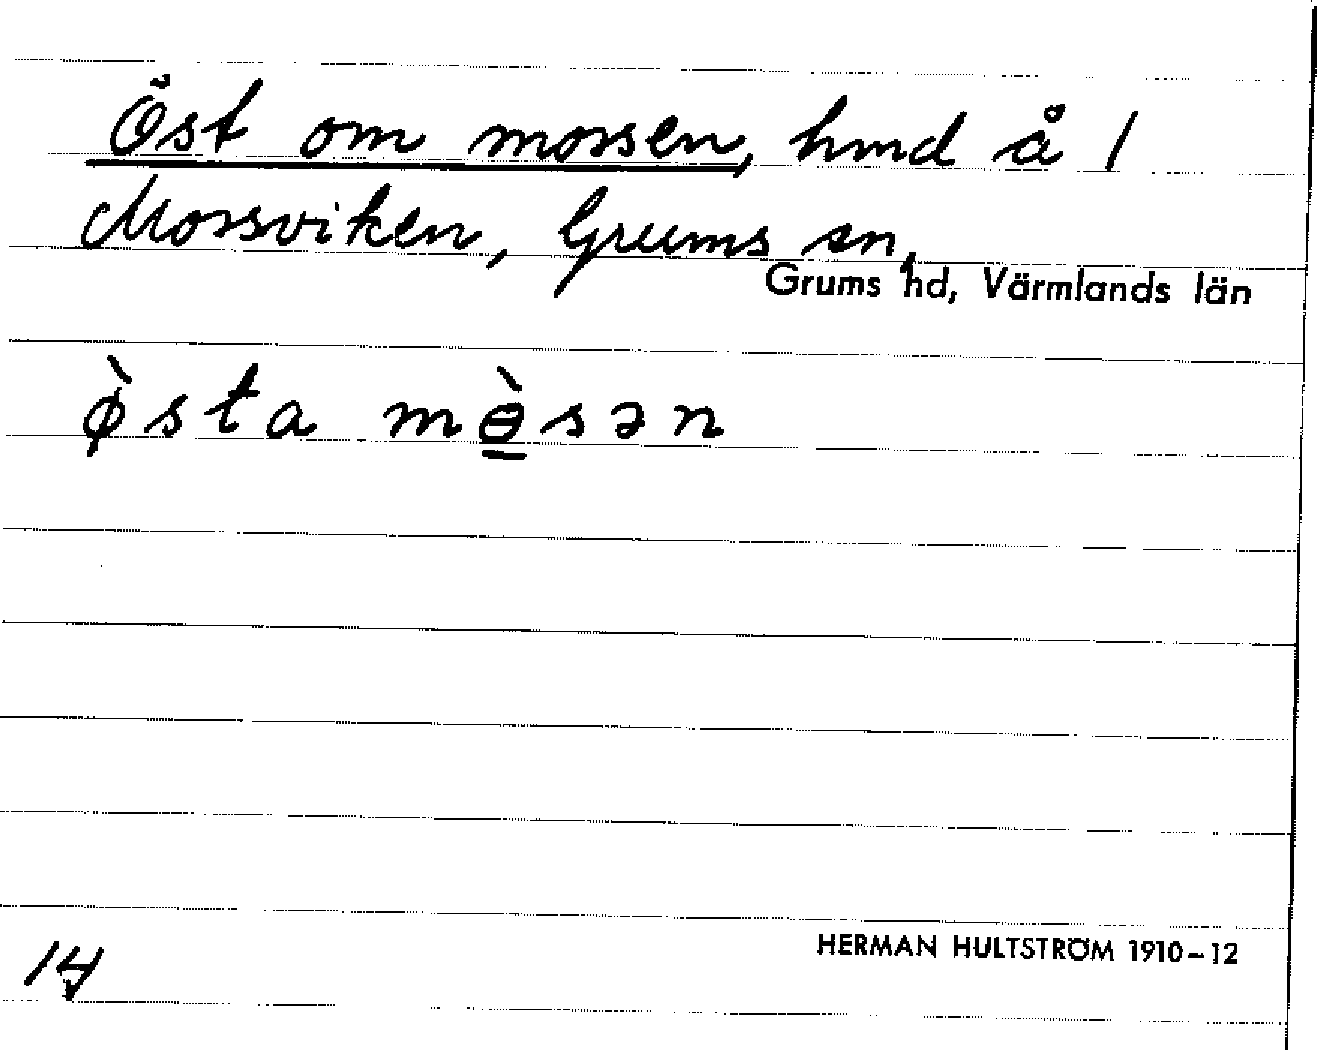 Öst om mossen, hmd å 1
Mossviken, Grums sn,
Grums hd, Värmlands län
ø̀sta mɵ̲̀sən
14
HERMAN HULTSTRÖM 1910–12